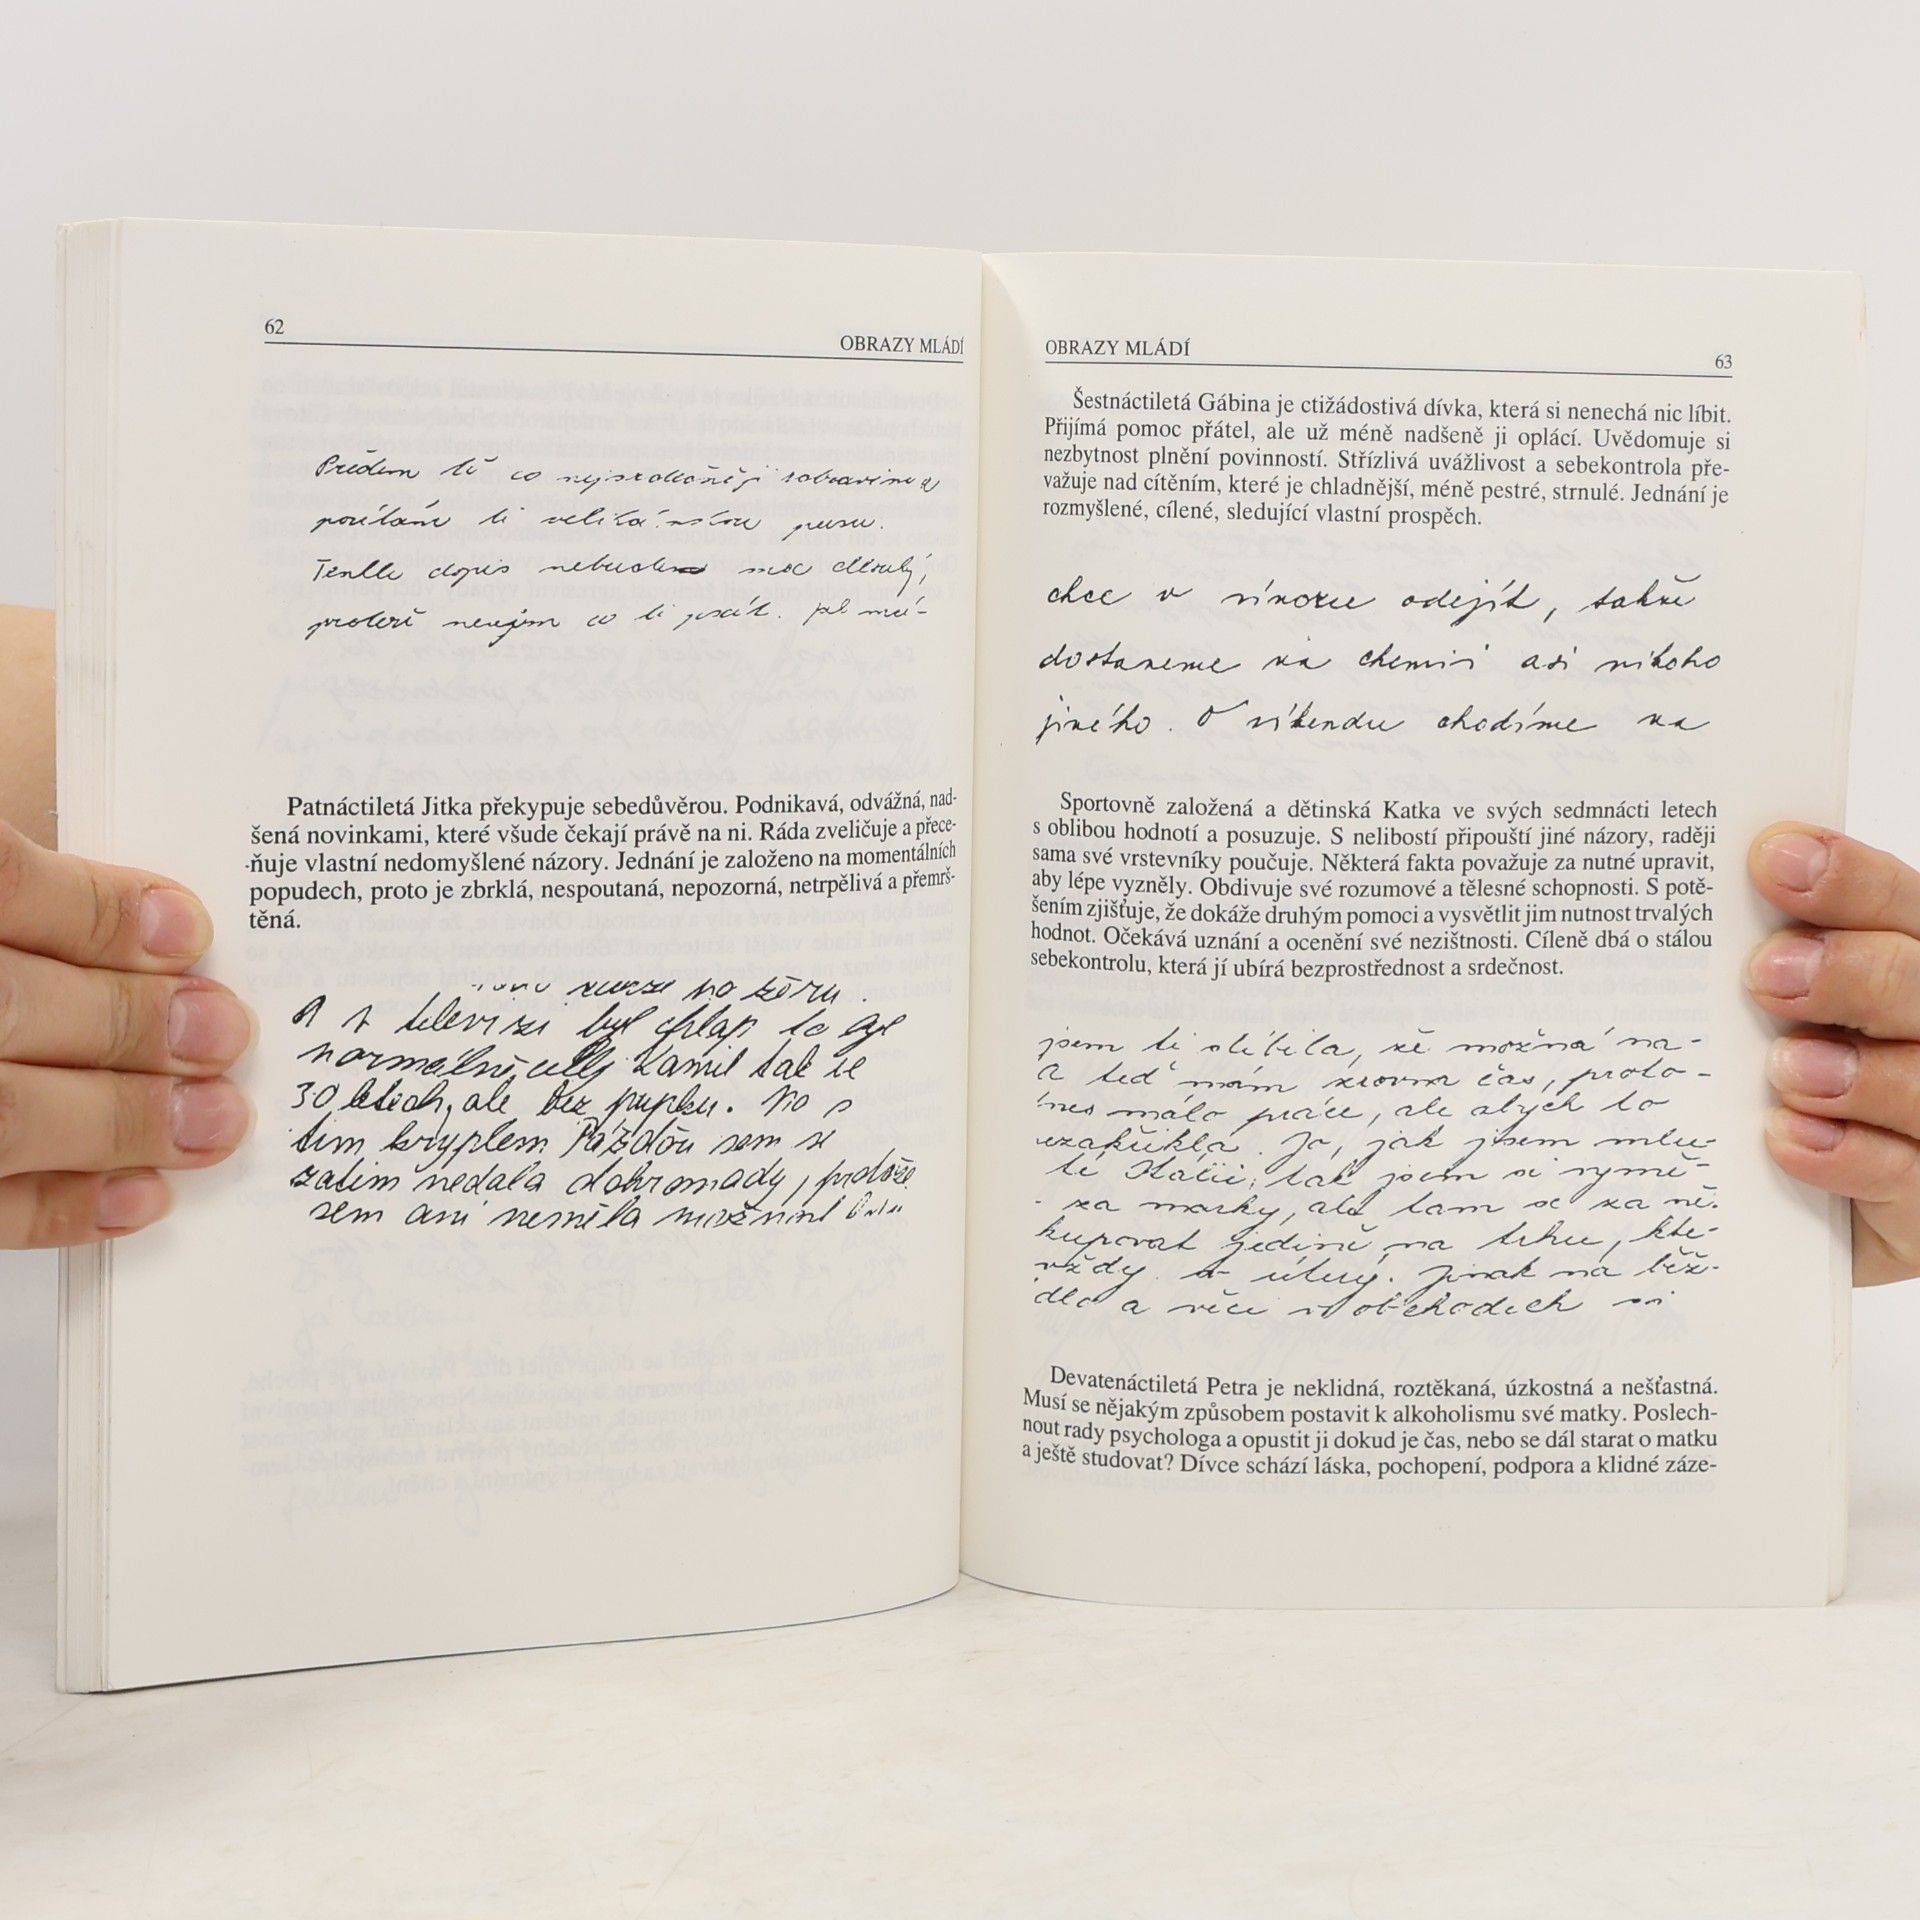 62
OBRAZY MLÁDÍ
Předem tě co nejsrdečněji zdravím a
posílám ti velikánskou pusu.
Tenhle dopis nebude moc dlouhý,
protože nevím co ti psát.
Patnáctiletá Jitka překypuje sebedůvěrou. Podnikavá, odvážná, nad-
šená novinkami, které všude čekají právě na ni. Ráda zveličuje a přece-
ňuje vlastní nedomyšlené názory. Jednání je založeno na momentálních
popudech, proto je zbrklá, nespoutaná, nepozorná, netrpělivá a přemrš-
těná.
A v televizi byl chlap to byl
normálně celý Kamil tak ve
30 letech, ale bez pupku. No s
tím kryplem Pažďou sem se
zatim nedala dohromady, protože
sem ani neměla možnost
OBRAZY MLÁDÍ
63
Šestnáctiletá Gábina je ctižádostivá dívka, která si nenechá nic líbit.
Přijímá pomoc přátel, ale už méně nadšeně ji oplácí. Uvědomuje si
nezbytnost plnění povinností. Střízlivá uvážlivost a sebekontrola pře-
važuje nad cítěním, které je chladnější, méně pestré, strnulé. Jednání je
rozmyšlené, cílené, sledující vlastní prospěch.
chce v únoru odejít, takže
dostaneme na chemii asi nikoho
jiného. O víkendu chodíme na
Sportovně založená a dětinská Katka ve svých sedmnácti letech
s oblibou hodnotí a posuzuje. S nelibostí připouští jiné názory, raději
sama své vrstevníky poučuje. Některá fakta považuje za nutné upravit,
aby lépe vyzněly. Obdivuje své rozumové a tělesné schopnosti. S potě-
šením zjišťuje, že dokáže druhým pomoci a vysvětlit jim nutnost trvalých
hodnot. Očekává uznání a ocenění své nezištnosti. Cíleně dbá o stálou
sebekontrolu, která jí ubírá bezprostřednost a srdečnost.
jsem ti slíbila, že možná na-
a teď mám zrovna čas, proto-
nes málo práce, ale abych to
nezakřikla. Jo, jak jsem mlu-
té Itálii, tak jsem si vymě-
za marky, ale tam se za ně
kupovat jedině na trhu, kte-
vždy v úterý. Jinak na běž-
dlo a věci v obchodech si
Devatenáctiletá Petra je neklidná, roztěkaná, úzkostná a nešťastná.
Musí se nějakým způsobem postavit k alkoholismu své matky. Poslech-
nout rady psychologa a opustit ji dokud je čas, nebo se dál starat o matku
a ještě studovat? Dívce schází láska, pochopení, podpora a klidné záze-